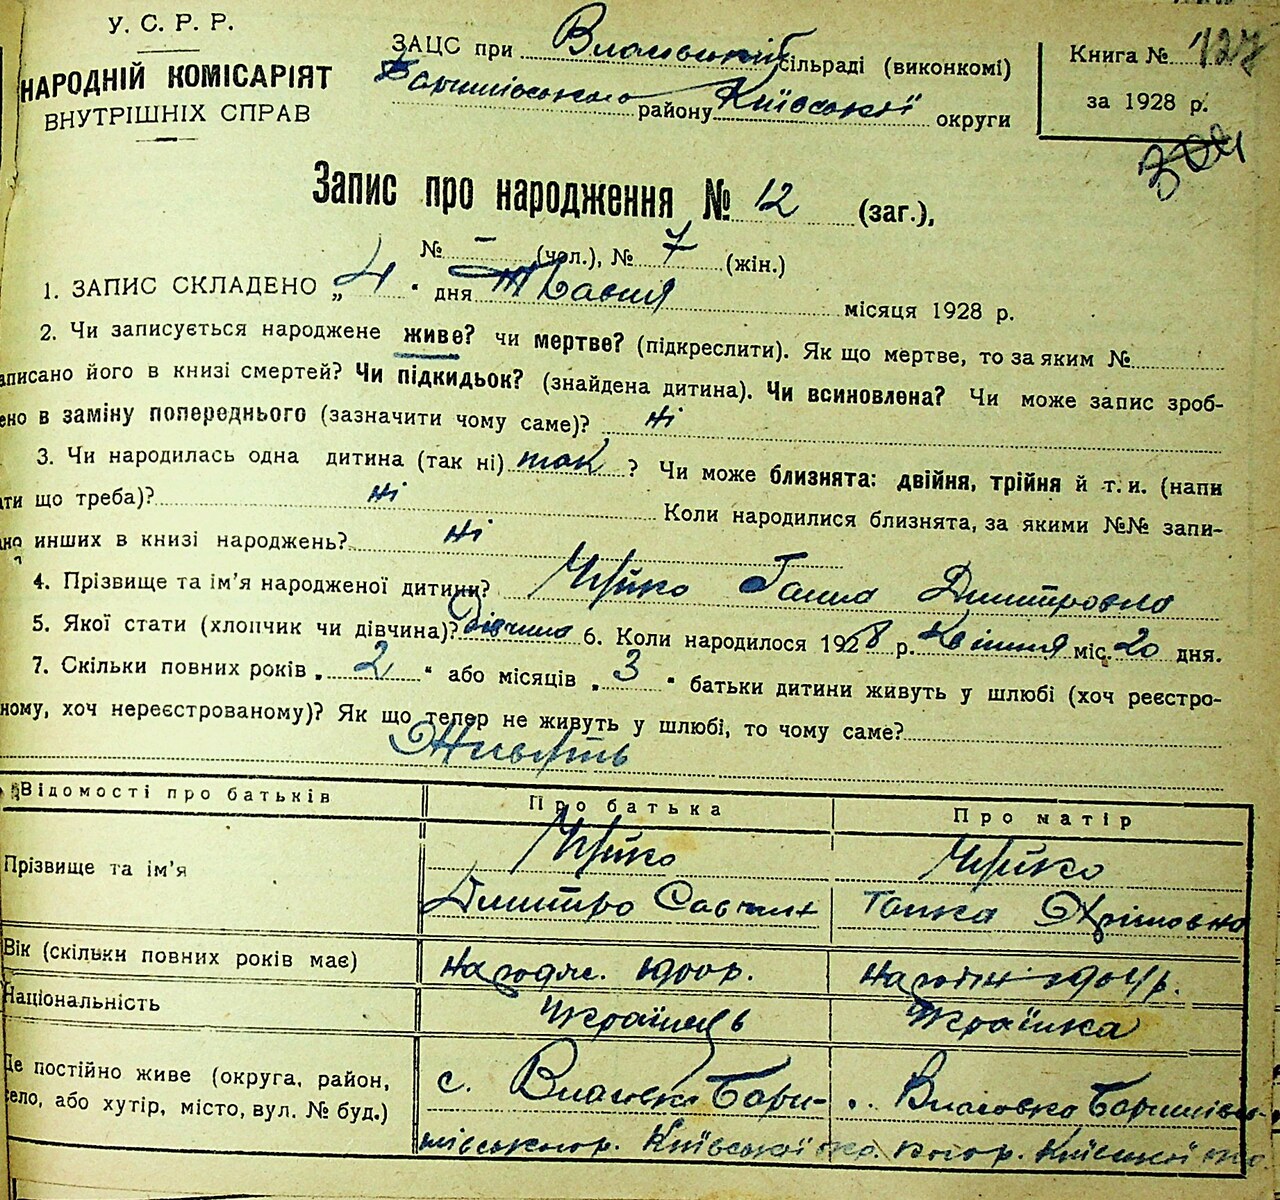 У. С. Р. Р.
НАРОДНІЙ КОМІСАРІЯТ
ВНУТРІШНІХ СПРАВ
ЗАЦС при Власівській сільраді (виконкомі)
Баришівського району Київської округи
Книга № 127
за 1928 р.
Запис про народження № 12 (заг.),
№ – (чол.), № 7 (жін.)
1. ЗАПИС СКЛАДЕНО „ 4 " дня Травня місяця 1928 р.
2. Чи записується народжене живе? чи мертве? (підкреслити). Як що мертве, то за яким №
аписано його в книзі смертей? Чи підкидьок? (знайдена дитина). Чи всиновлена? Чи може запис зроб-
ено в заміну попереднього (зазначити чому саме)? Ні
3. Чи народилась одна дитина (так ні) так ? Чи може близнята: двійня, трійня й т. и. (напи
ати що треба)? Ні Коли народилися близнята, за якими №№ запи-
но инших в книзі народжень? Ні
4. Прізвище та ім'я народженої дитини? Ганна Дмитровна
5. Якої стати (хлопчик чи дівчина)? дівчина 6. Коли народилося 1928 р. Квітня міс. 20 дня.
7. Скільки повних років „ 2 " або місяців „ 3 " батьки дитини живуть у шлюбі (хоч реєстро-
ному, хоч нереєстрованому)? Як що тепер не живуть у шлюбі, то чому саме?
Живуть
Відомості про батьків Про батька Про матір
Прізвище та ім'я
Дмитро Савич
Вік (скільки повних років має) народж. 1900 р. народж. 1904 р.
Національність Українець Українка
Де постійно живе (округа, район, село, або хутір, місто, вул. № буд.) с. Власовка Бари- Власовка Баришівсь-
шівського р. Київської окр. кого р. Київської окр